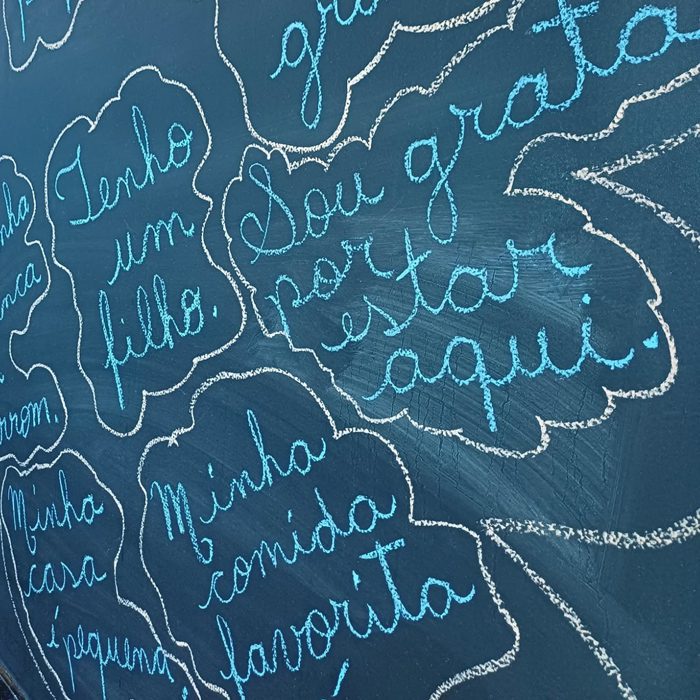 gr
Tenho
um
filho.
Sou grata
por
estar
aqui.
nha
nca
rrom.
Minha
casa
é pequena
Minha
comida
favorita
é